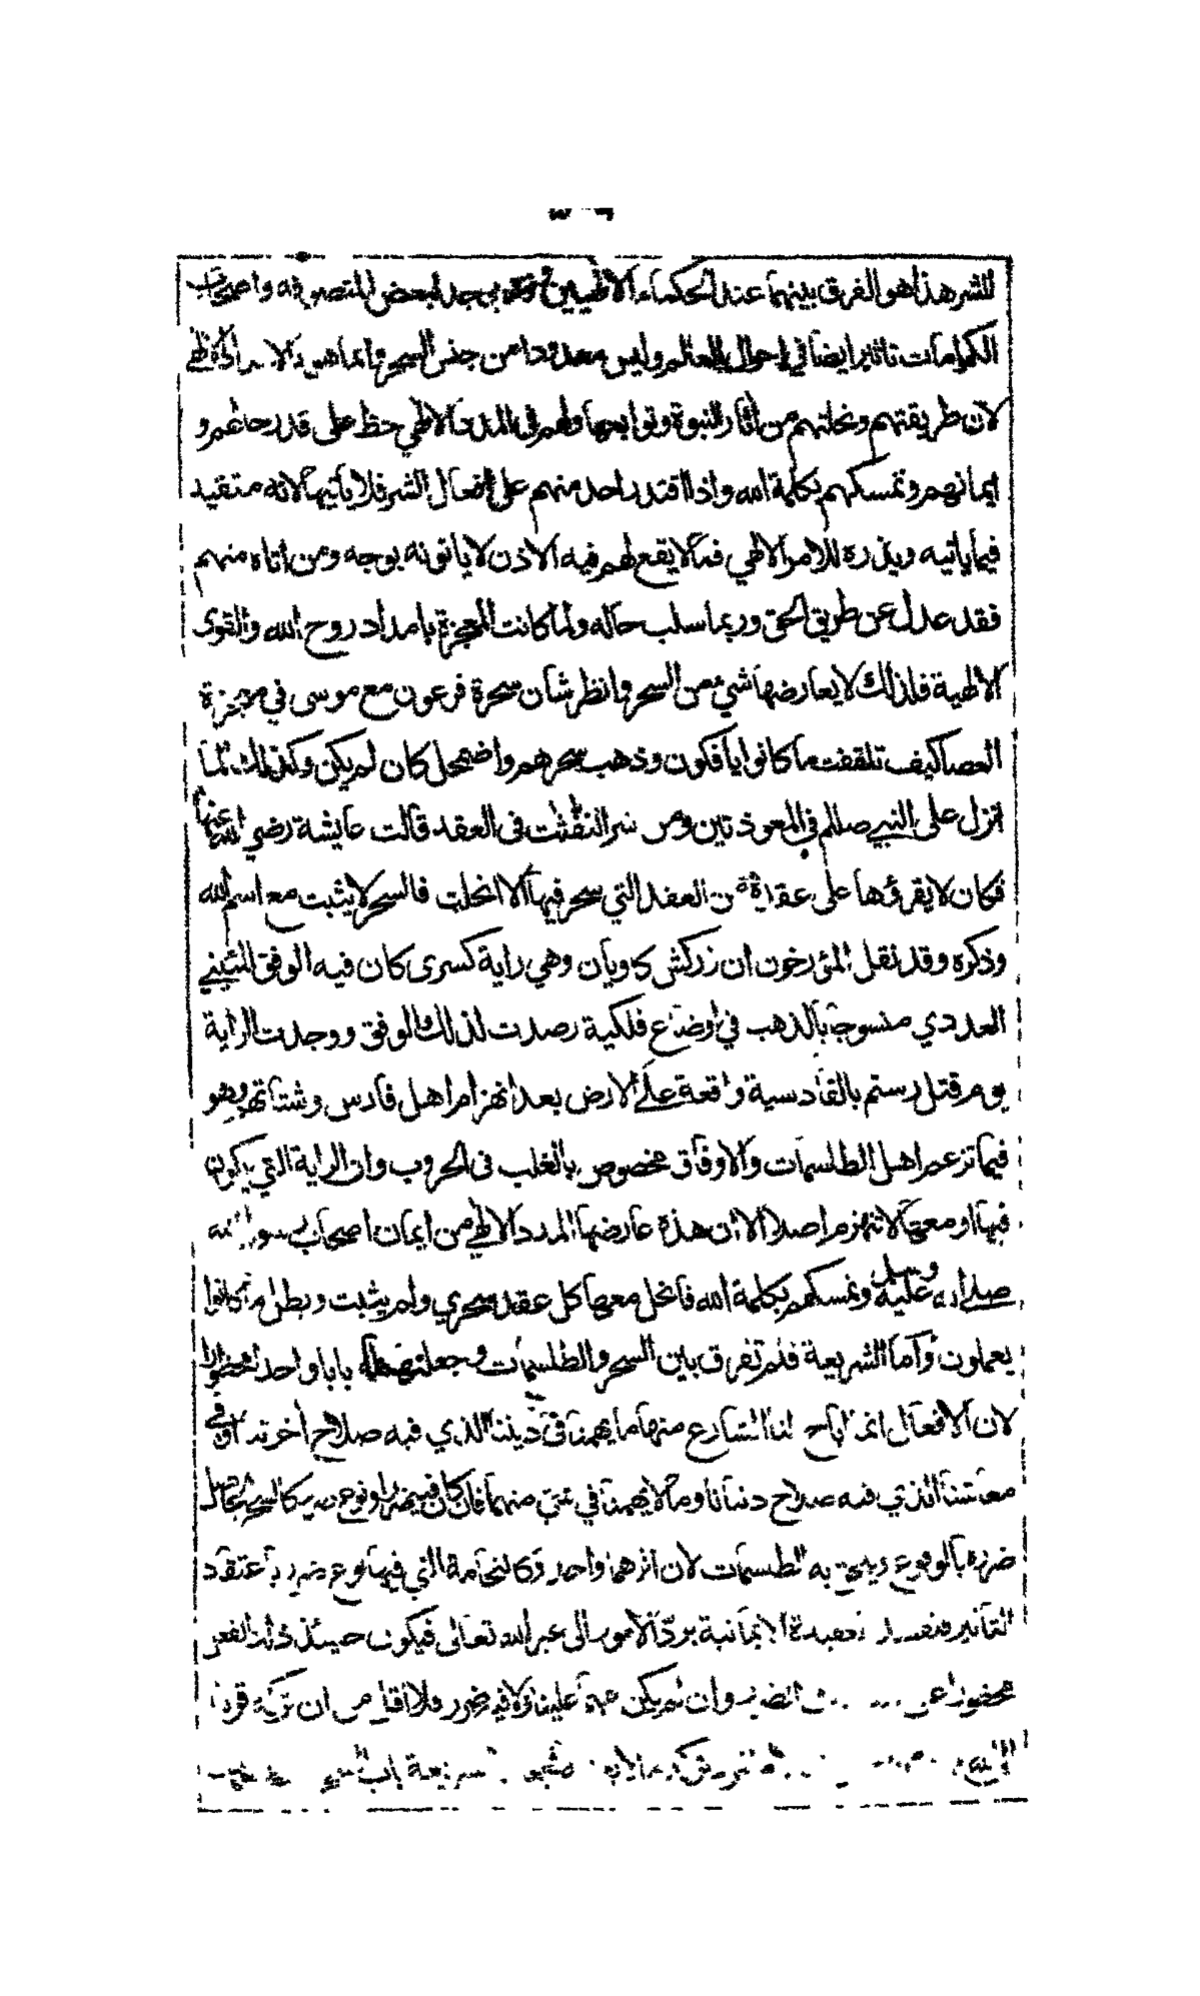 للشر هذا هو الفرق بينهما عند الحكماء الالهيين وقد يوجد لبعض المتصوفه واصحاب
الكرامات تاثير ايضا في احوال العالم وليس معدودا من جنس السحر وانما هو بالامداد الالهي
لان طريقتهم ونحلتهم من اثار النبوة وتوابعها ولهم في المدد الالهي حظ على قدر حالهم و
ايمانهم وتمسكهم بكلمة الله واذا اقتدر احد منهم على افعال الشر فلا ياتيها لانه متقيد
فيما ياتيه ويذره للامر الالهي فما لا يقع لهم فيه الاذن لا ياتونه بوجه ومن اتاه منهم
فقد عدل عن طريق الحق وربما سلب حاله ولما كانت المعجزة بامداد روح الله والقوى
الالهية فلذلك لا يعارضها شيء من السحر وانظر شان سحرة فرعون مع موسى في معجزة
العصا كيف تلقفت ما كانوا يافكون وذهب سحرهم واضمحل كان لم يكن وكذلك لما
انزل على النبي صللم في المعوذتين ومن شر النفّٰثٰت في العقد قالت عايشة رضي الله عنها
فكان لا يقرؤها على عقدة من العقد التي سحر فيها الا انحلت فالسحر لا يثبت مع اسم الله
وذكره وقد نقل المؤرخون ان زركش كاويان وهي راية كسرى كان فيه الوفق المئيني
العددي منسوجا بالذهب في اوضاع فلكية رصدت لذلك الوفق ووجدت الراية
يوم قتل رستم بالقادسية واقعة على الارض بعد انهزام اهل فارس وشتاتهم وهو
فيما تزعم اهل الطلسمات والاوفاق مخصوص بالغلب في الحروب وان الراية التي يكون
فيها او معها لا تنهزم اصلا الا ان هذه عارضها المدد الالهي من ايمان اصحاب رسول الله
صلى الله عليه وسلم وتمسكهم بكلمة الله فانحل معها كل عقد سحري ولم يثبت وبطل ما كانوا
يعملون واما الشريعة فلم تفرق بين السحر والطلسمات وجعلتهما بابا واحدا محظورا
لان الافعال انما اباح لنا الشارع منها ما يهمنا في ديننا الذي فيه صلاح اخرتنا او في
معاشنا الذي فيه صلاح دنيانا وما لا يهمنا في شئ منهما فان كان فيه ضرر او نوع ضرر كالسحر الحاصل
ضرره بالوقوع ويلحق به الطلسمات لان اثرهما واحد وكالنجامة التي فيها نوع ضرر باعتقاد
التاثير فتفسد العقيدة الايمانية بردّ الامور الى غير الله تعالى فيكون حينئذ ذلك الفعل
محضورا على ... الضرر وان لم يكن مهما علينا ولا فيه ضرر فلا اقل من ان تركه قربة